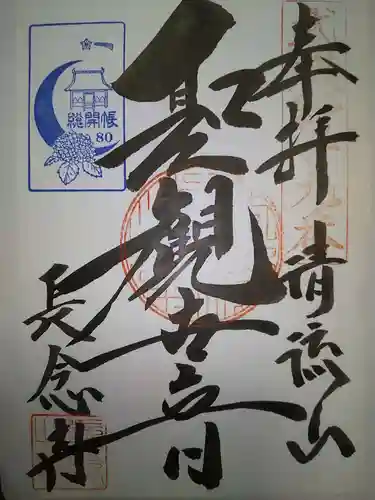 奉拝 清流山
聖観世音
長念寺
一
総開帳
80